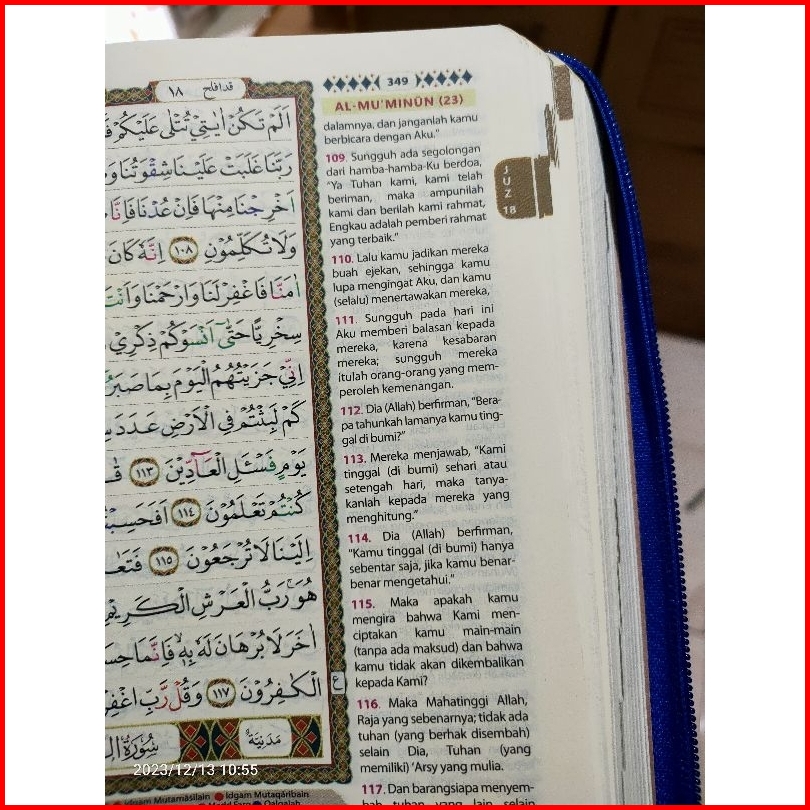 قدافلح ١٨
اَلَمْ تَكُنْ اٰيٰتِيْ تُتْلٰى عَلَيْكُمْ
رَبَّنَا غَلَبَتْ عَلَيْنَا شِقْوَتُنَا
اَخْرِجْنَا مِنْهَا فَاِنْ عُدْنَا فَاِنَّا
وَلَا تُكَلِّمُوْنِ ١٠٨ اِنَّهٗ كَانَ
اٰمَنَّا فَاغْفِرْ لَنَا وَارْحَمْنَا وَاَنْتَ
سِخْرِيًّا حَتّٰٓى اَنْسَوْكُمْ ذِكْرِيْ
اِنِّيْ جَزَيْتُهُمُ الْيَوْمَ بِمَا صَبَرُ
كَمْ لَبِثْتُمْ فِى الْاَرْضِ عَدَدَ
يَوْمٍ فَسْـَٔلِ الْعَاۤدِّيْنَ ١١٣
كُنْتُمْ تَعْلَمُوْنَ ١١٤ اَفَحَسِبْ
اِلَيْنَا لَا تُرْجَعُوْنَ ١١٥ فَتَعٰ
هُوَ رَبُّ الْعَرْشِ الْكَرِيْمِ
اٰخَرَ لَا بُرْهَانَ لَهٗ بِهٖ فَاِنَّمَا حِسَ
الْكٰفِرُوْنَ ١١٧ وَقُلْ رَّبِّ اغْفِرْ
ع
مَدَنِيَّة سُوْرَةُ
349
AL-MU'MINŪN (23)
dalamnya, dan janganlah kamu
berbicara dengan Aku."
109. Sungguh ada segolongan
dari hamba-hamba-Ku berdoa,
"Ya Tuhan kami, kami telah
beriman, maka ampunilah
kami dan berilah kami rahmat,
Engkau adalah pemberi rahmat
yang terbaik."
110. Lalu kamu jadikan mereka
buah ejekan, sehingga kamu
lupa mengingat Aku, dan kamu
(selalu) menertawakan mereka,
111. Sungguh pada hari ini
Aku memberi balasan kepada
mereka, karena kesabaran
mereka; sungguh mereka
itulah orang-orang yang mem-
peroleh kemenangan.
112. Dia (Allah) berfirman, "Bera-
pa tahunkah lamanya kamu ting-
gal di bumi?"
113. Mereka menjawab, "Kami
tinggal (di bumi) sehari atau
setengah hari, maka tanya-
kanlah kepada mereka yang
menghitung."
114. Dia (Allah) berfirman,
"Kamu tinggal (di bumi) hanya
sebentar saja, jika kamu benar-
benar mengetahui."
115. Maka apakah kamu
mengira bahwa Kami men-
ciptakan kamu main-main
(tanpa ada maksud) dan bahwa
kamu tidak akan dikembalikan
kepada Kami?
116. Maka Mahatinggi Allah,
Raja yang sebenarnya; tidak ada
tuhan (yang berhak disembah)
selain Dia, Tuhan (yang
memiliki) 'Arsy yang mulia.
117. Dan barangsiapa menyem-
bah tuhan yang lain selain
JUZ
18
2023/12/13 10:55
Idgam Mutamāṡilain Idgam Mutaqāribain
Qalqalah